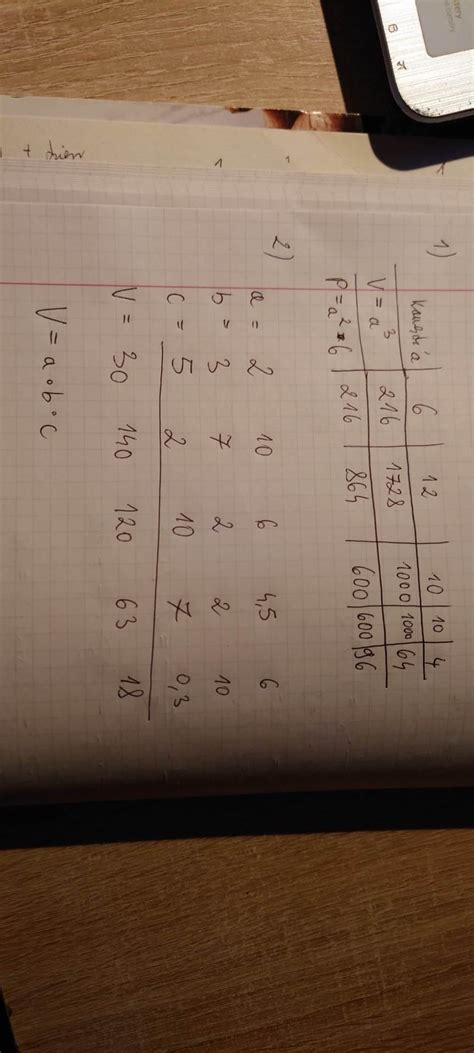 1)
Krawędź a 6 12 10 10 4
V = a³ 216 1728 1000 1000 64
P = a² • 6 216 864 600 600 96
2)
a = 2 10 6 4,5 6
b = 3 7 2 2 10
c = 5 2 10 7 0,3
V = 30 140 120 63 18
V = a • b • c